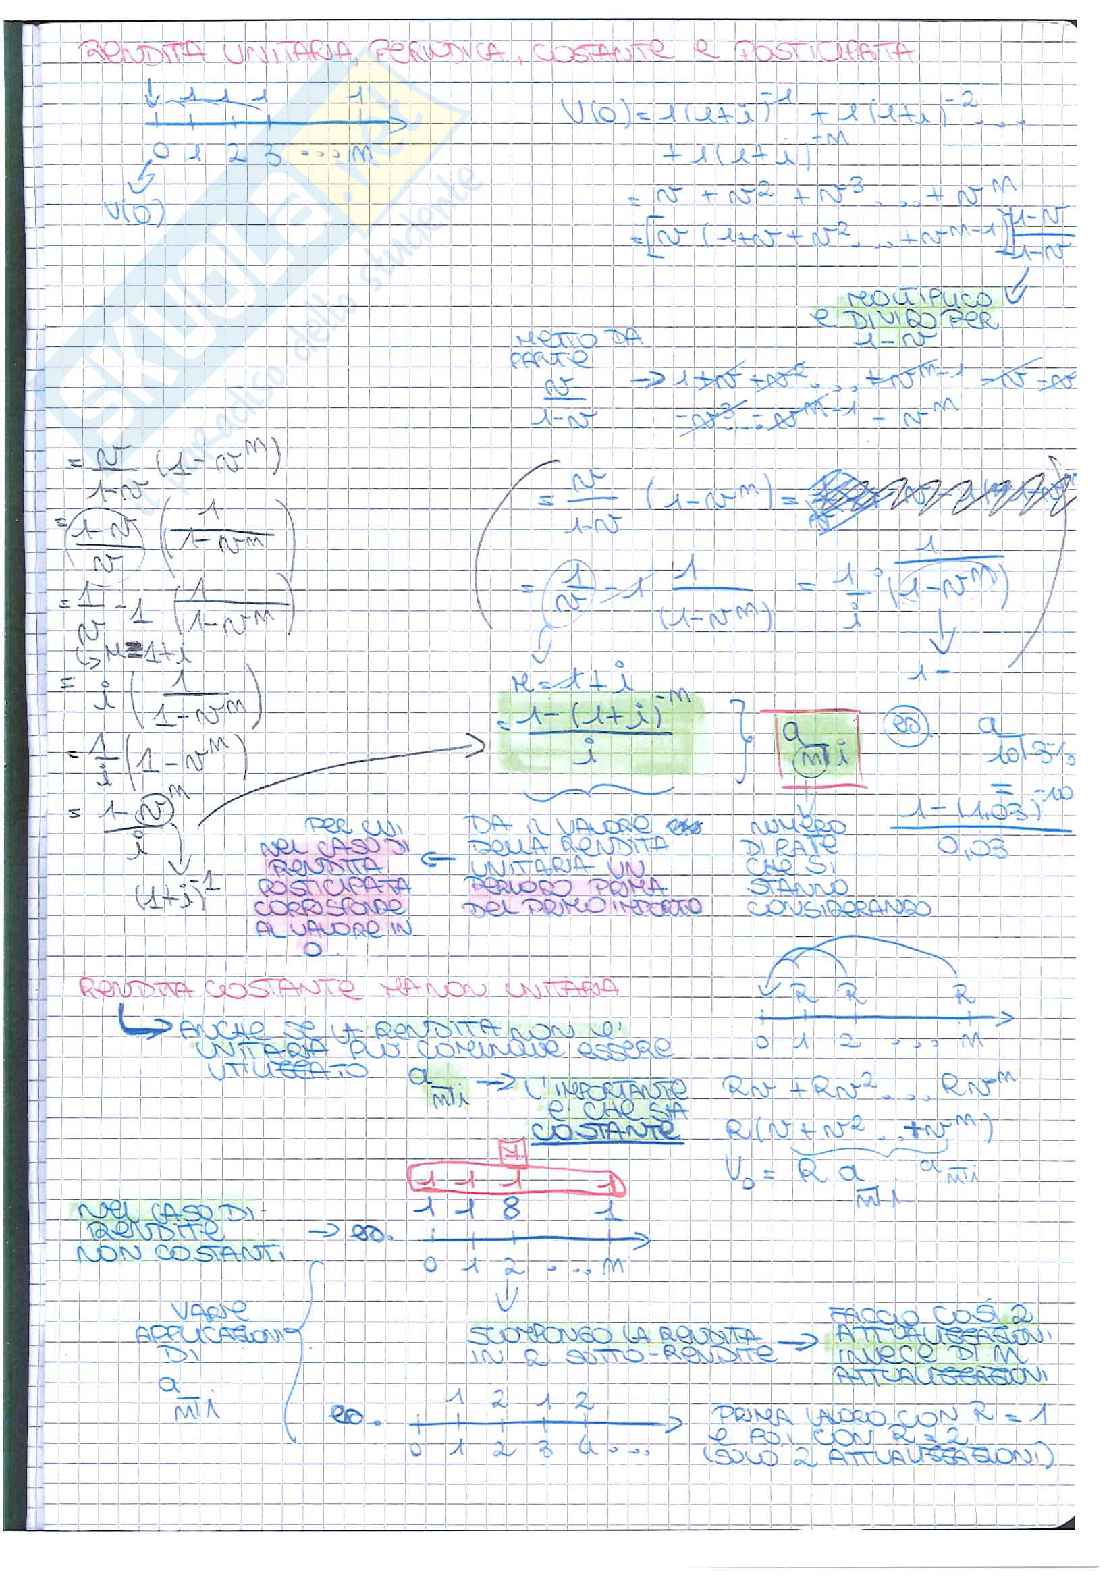 RENDITA UNITARIA, PERIODICA, COSTANTE E POSTICIPATA
1 1 1 1
0 1 2 3 ... m
V(0)
V(0) = 1(1+i)^-1 + 1(1+i)^-2 ...
+ 1(1+i)^-m
= v + v^2 + v^3 ... + v^m
= [v (1+v+v^2 ... + v^m-1)] 1-v / 1-v
MOLTIPLICO
E DIVIDO PER
1-v
METTO DA
PARTE
v / 1-v
→ 1 + v + v^2 ... + v^m-1 - v - v^2
- v^3 ... - v^m-1 - v^m
= v / 1-v (1-v^m)
= 1-v / v (1 / 1-v^m)
= 1/v - 1 (1 / 1-v^m)
↳ r = 1+i
= i (1 / 1-v^m)
= 1/i (1-v^m)
= 1-v^m / i
(1+i)^-1
= v / 1-v (1-v^m) =
= 1/v - 1 1 / (1-v^m) = 1/i · 1 / (1-v^m)
r = 1+i
1-
= 1-(1+i)^-m / i
a m̅| i
es. a 10|3%
= 1-(1,03)^-10 / 0,03
PER CUI
NEL CASO DI
RENDITA
POSTICIPATA
CORRISPONDE
AL VALORE IN
0
DA IL VALORE
DELLA RENDITA
UNITARIA UN
PERIODO PRIMA
DEL PRIMO IMPORTO
NUMERO
DI RATE
CHE SI
STANNO
CONSIDERANDO
RENDITA COSTANTE MA NON UNITARIA
ANCHE SE LA RENDITA NON E'
UNITARIA PUO' COMUNQUE ESSERE
UTILIZZATO a m̅| i → L'IMPORTANTE
E' CHE SIA
COSTANTE
R R R
0 1 2 ... m
Rv + Rv^2 ... Rv^m
R(v + v^2 ... + v^m)
a m̅| i
V0 = R a m̅| i
7
1 1 1 1
1 1 8 1
0 1 2 ... m
NEL CASO DI
RENDITE
NON COSTANTI
→ es.
SCOMPONGO LA RENDITA
IN 2 SOTTO-RENDITE
→ FACCIO COSÌ 2
ATTUALIZZAZIONI
INVECE DI M
ATTUALIZZAZIONI
VARIE
APPLICAZIONI
DI
a m̅| i
es.
1 2 1 2
0 1 2 3 4 ...
PRIMA LAVORO CON R = 1
E POI CON R = 2
(SOLO 2 ATTUALIZZAZIONI)
SKUOLA.net
il paradiso dello studente